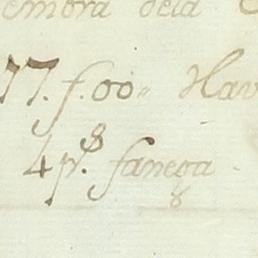 embra dela
77. f. 00" Hav
4 p.s fanega